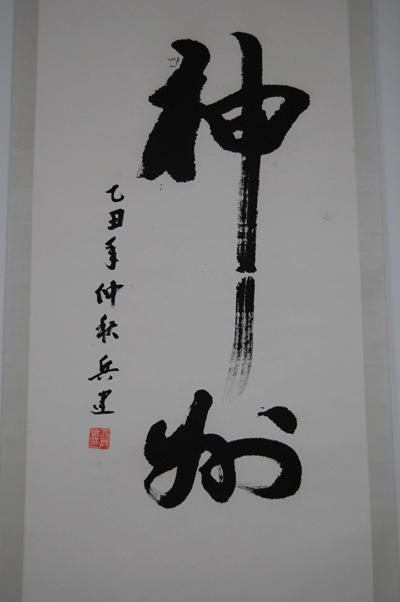 神州
乙丑年仲秋兵建